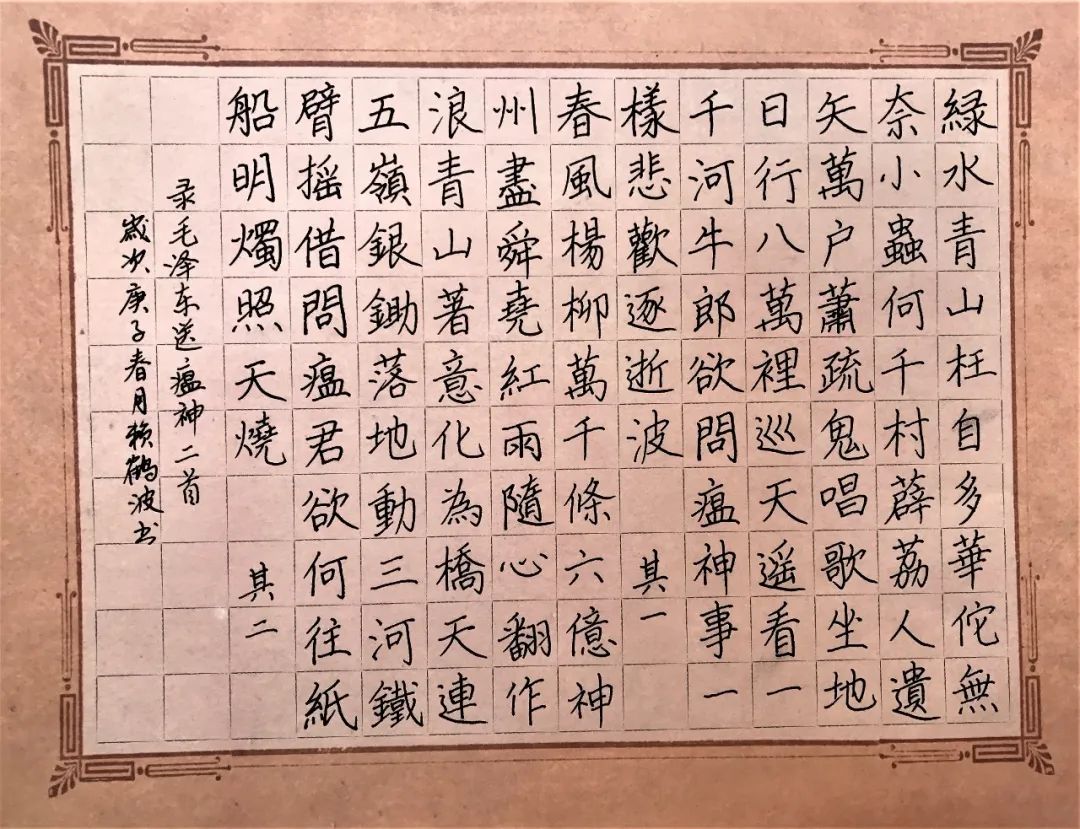 緑水青山枉自多華佗無
奈小蟲何千村薜荔人遺
矢萬户蕭疏鬼唱歌坐地
日行八萬裡巡天遥看一
千河牛郎欲問瘟神事一
樣悲歡逐逝波 其一
春風楊柳萬千條六億神
州盡舜堯紅雨隨心翻作
浪青山著意化為橋天連
五嶺銀鋤落地動三河鐵
臂摇借問瘟君欲何往紙
船明燭照天燒 其二
录毛泽东送瘟神二首
歲次庚子春月賴鶴波书